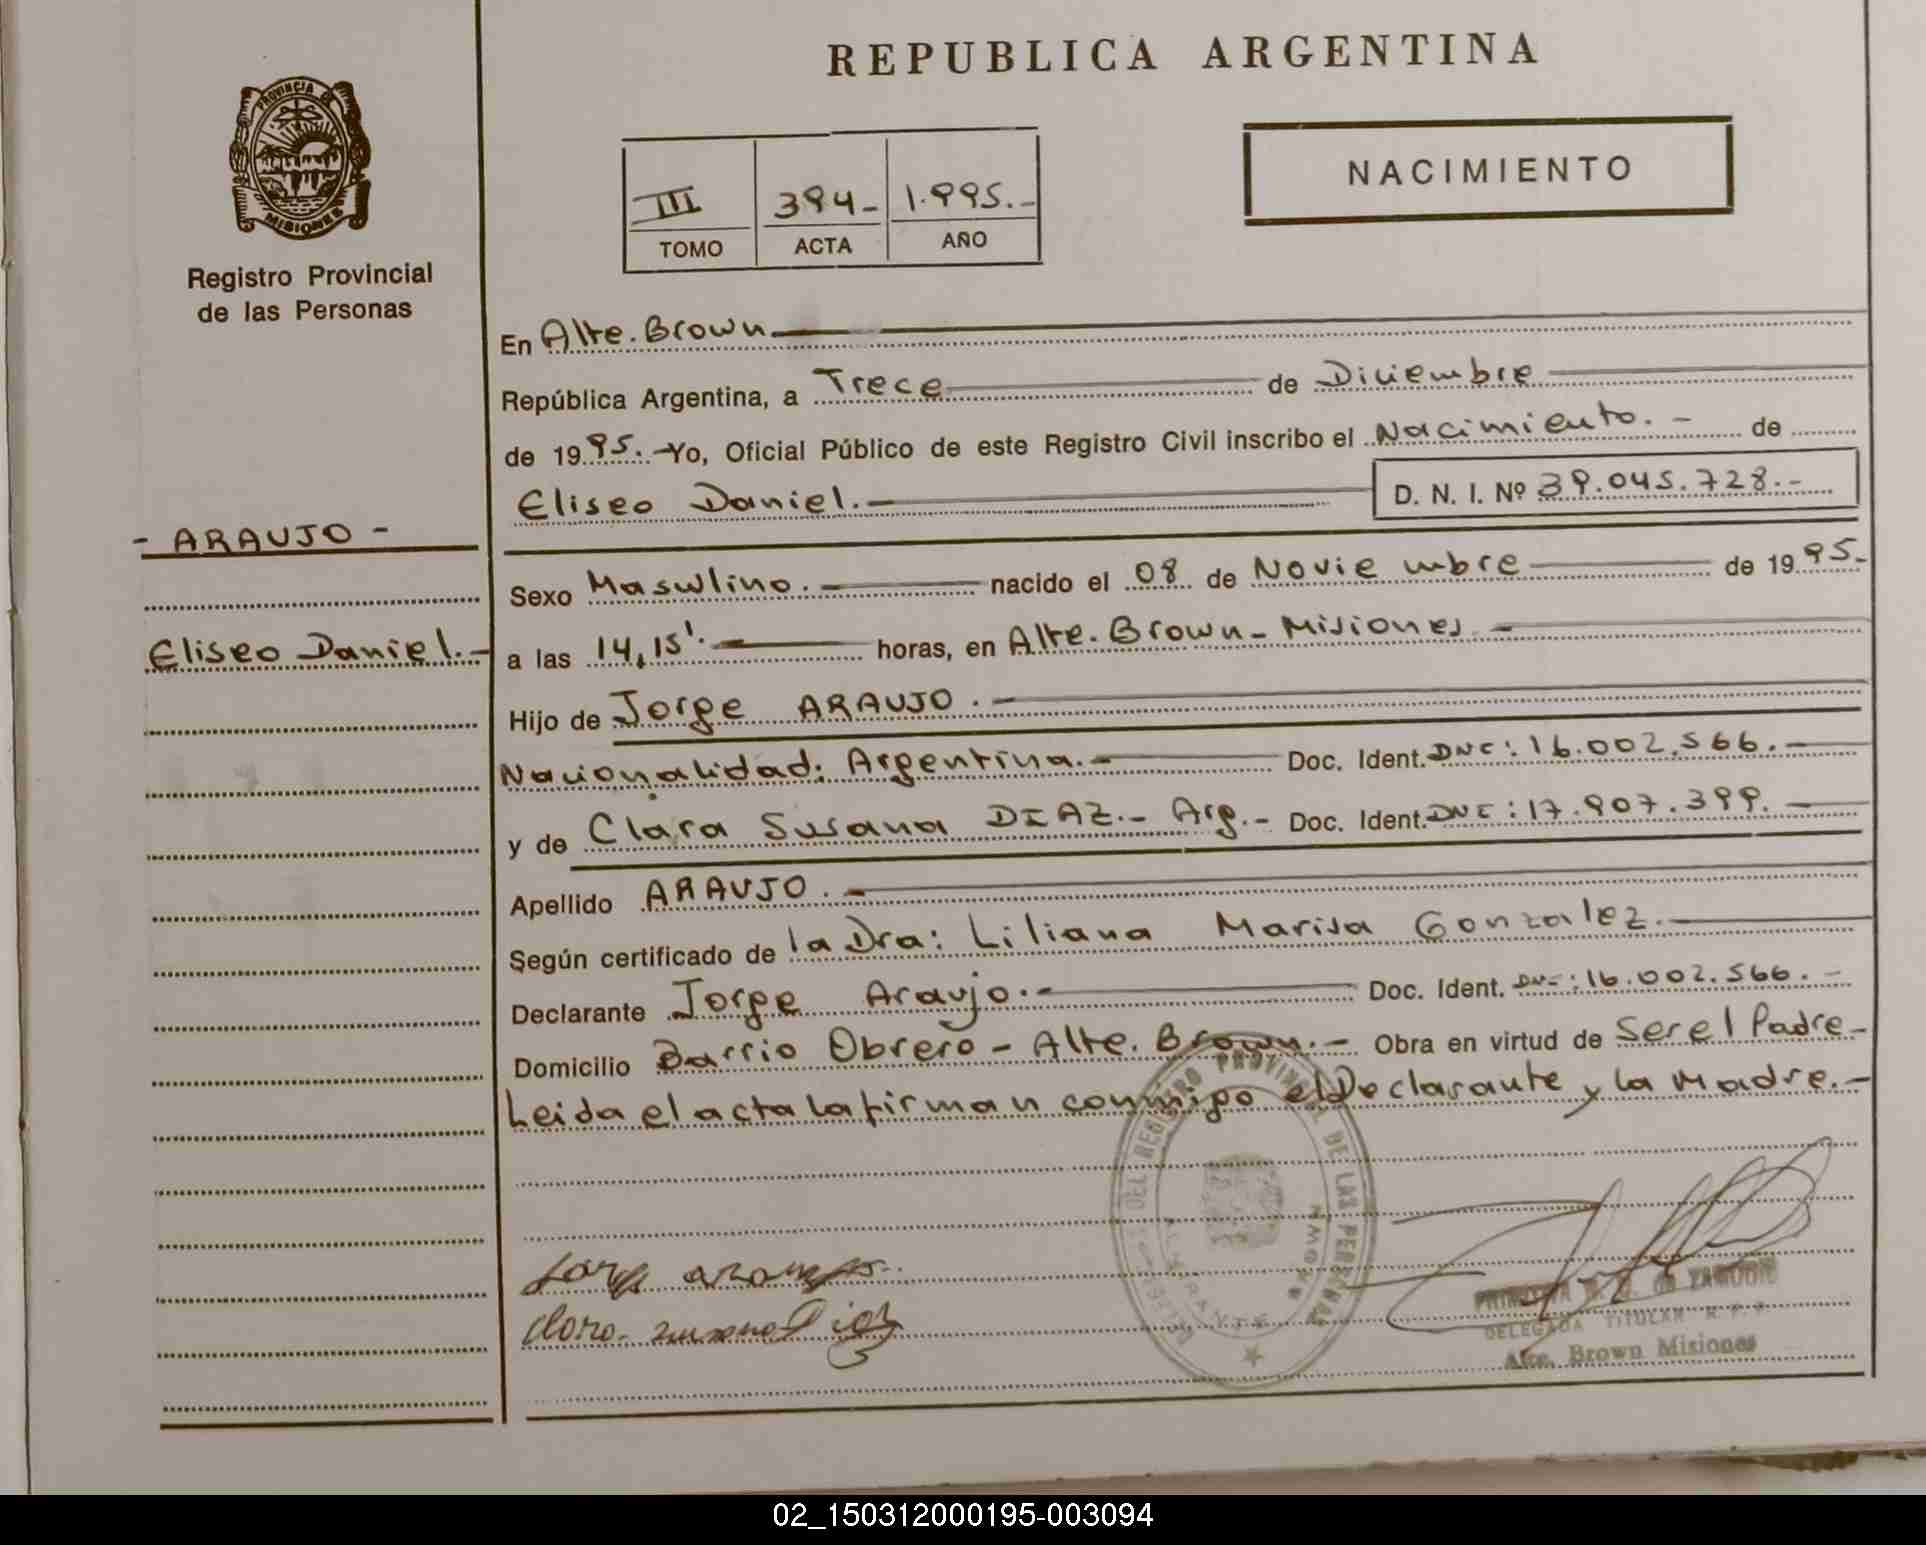 REPUBLICA ARGENTINA
PROVINCIA DE
MISIONES
Registro Provincial
de las Personas
III 394- 1.995.-
TOMO ACTA AÑO
NACIMIENTO
En Alte. Brown
República Argentina, a Trece de Diciembre
de 1995.- Yo, Oficial Público de este Registro Civil inscribo el Nacimiento.- de
Eliseo Daniel.- D. N. I. Nº 39.045.728.-
- ARAUJO -
Eliseo Daniel.-
Sexo Masculino. nacido el 08 de Noviembre de 1995.-
a las 14,15'. horas, en Alte. Brown - Misiones.-
Hijo de Jorge ARAUJO.-
Nacionalidad: Argentina.- Doc. Ident. DNI: 16.002.566.-
y de Clara Susana DIAZ.- Arg.- Doc. Ident. DNI: 17.907.399.-
Apellido ARAUJO.-
Según certificado de la Dra: Liliana Marisa Gonzalez.-
Declarante Jorge Araujo.- Doc. Ident. DNI: 16.002.566.-
Domicilio Barrio Obrero - Alte. Brown.- Obra en virtud de Ser el Padre-
Leida el acta la firman conmigo el Declarante y la Madre.-
DEL REGISTRO PROVINCIAL DE LAS PERSONAS
ALMIRANTE BROWN
DE ZAMUDIO
DELEGADA TITULAR R.P.P.
Alte. Brown Misiones
02_150312000195-003094